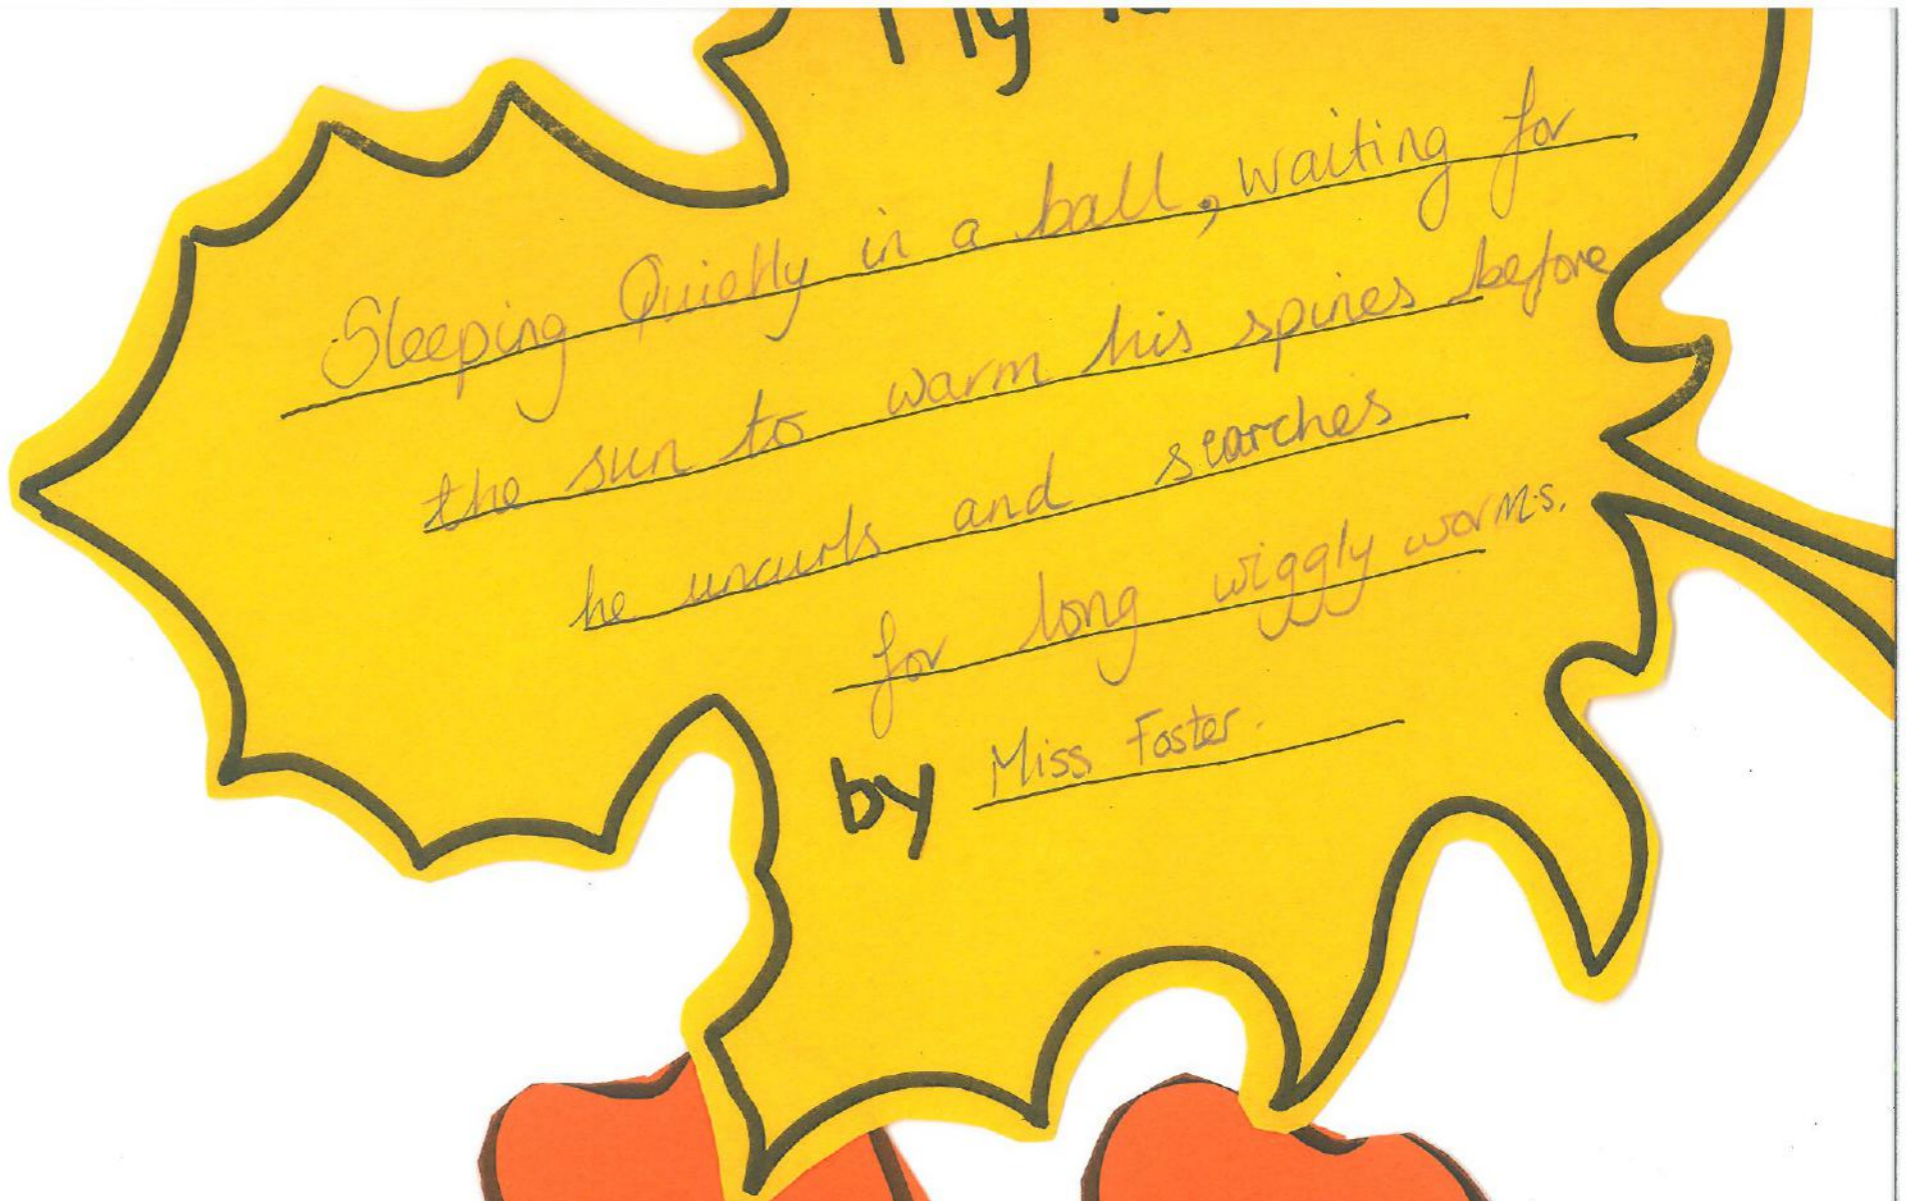 My
Sleeping Quietly in a ball, waiting for
the sun to warm his spines before
he uncurls and searches
for long wiggly worms.
by Miss Foster.